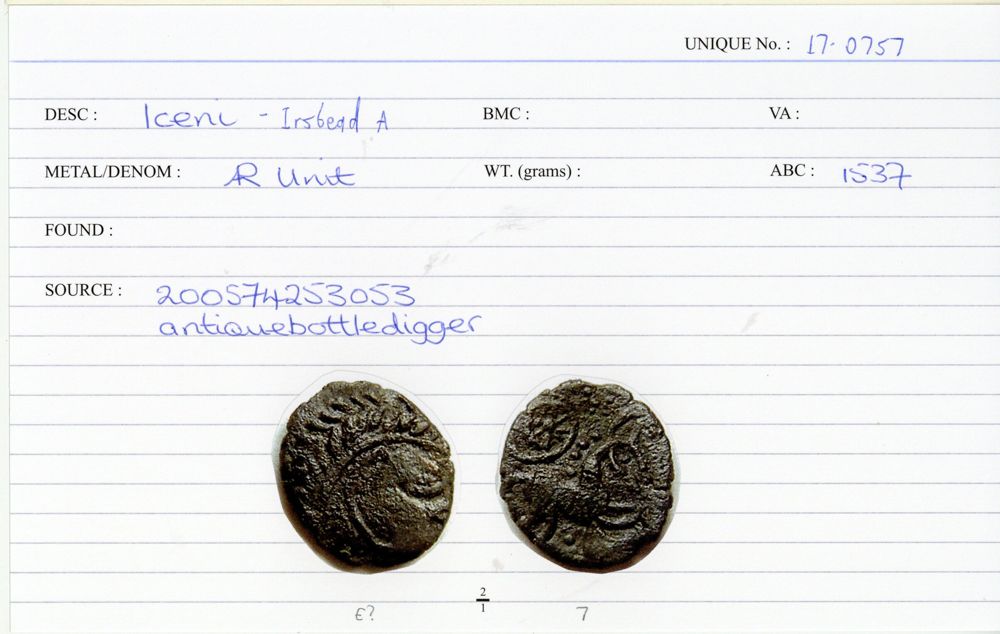 UNIQUE No. : 17-0757
DESC : Iceni - Irsbead A BMC : VA :
METAL/DENOM : AR Unit WT. (grams) : ABC : 1537
FOUND :
SOURCE : 200574253053
antiquebottledigger
2
1
E? 7